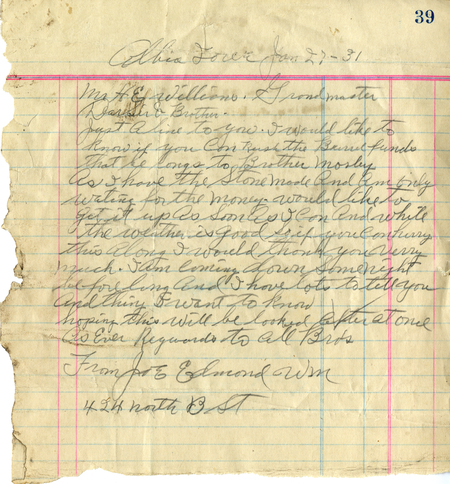 39
Albia Iower Jan 27-31
Mr H E Williams. Grandmaster
Dear Sir & Brother.
Just a line to you. I would like to
know if you Con rush the Burel funds
that be longs to Brother Mosley
As I have the Stone made And Am only
wating for the money. would like to
get it up As soon As I Con And while
the weather is good So if you Con hurry
this Along I would thonk you very
much. I Am Coming down some night
before long And I have lots to tell you
And things I want to know
hoping this will be looked After at once
As Ever Reguards to All Bros
From Joe Edmond WM
424 North B St